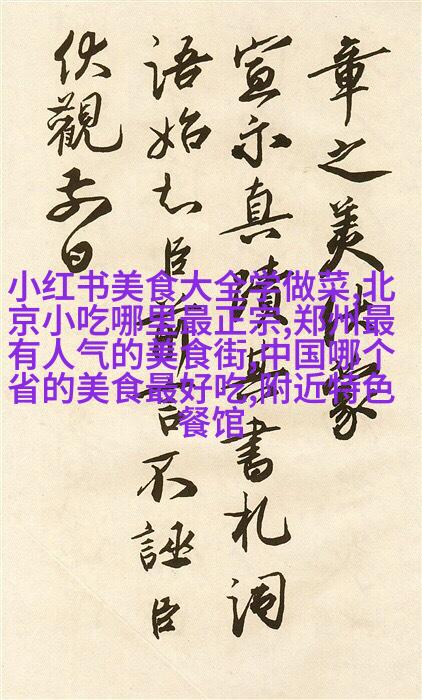 章之美伏蒙
宣示真蹟其書札词
语始知臣言不誣臣
伏觀前日
小红书美食大全学做菜,北
京小吃哪里最正宗,郑州最
有人气的美食街,中国哪个
省的美食最好吃,附近特色
餐馆